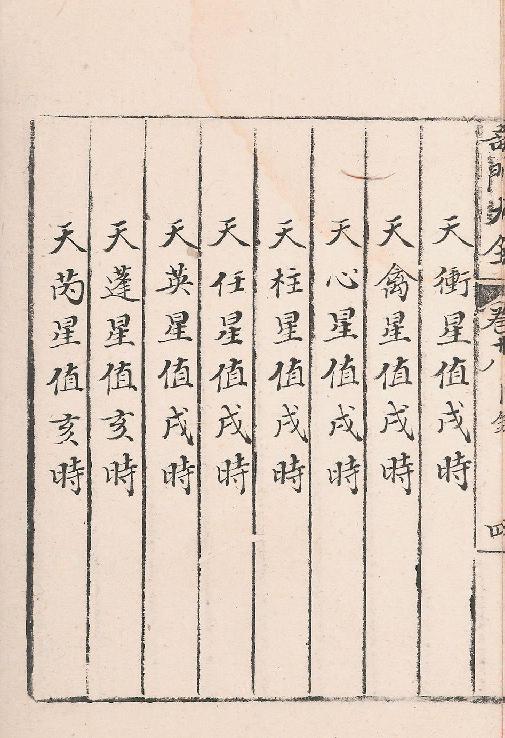 天衝星值戌時
天禽星值戌時
天心星值戌時
天柱星值戌時
天任星值戌時
天英星值戌時
天蓬星值亥時
天芮星值亥時